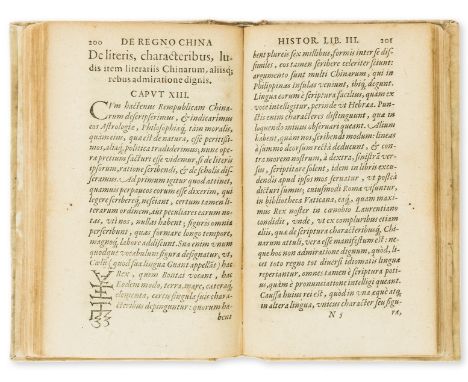 200 DE REGNO CHINA
De literis, characteribus, lu-
dis item literariis Chinarum, aliisq;
rebus admiratione dignis.
CAPVT XIII.
CVm hactenus Rempublicam China-
rum descripserimus, & indicarimus
eos Astrologiæ, Philosophiæq; tam moralis,
quàm eius, quæ est de natura, esse peritissi-
mos, aliaq; politica tradiderimus, nunc ope-
ræ pretium facturi esse videmur, si de literis
ipsorum, ratione scribendi, & de scholis dis-
seramus. Ad primum igitur quod attinet,
quamvis perpaucos eorum esse dixerim, qui
legere scribereq; nesciant, certum tamen li-
terarum ordinem, aut peculiares earum no-
tas, vti nos, nullas habent; figuris omnia
perscribunt, quas formare longo tempore,
magnoq; labore addiscunt. Sua enim vnum
quodque vocabulum figura designatur, vt
Cælũ (quod sua lingua Guant appellãt) hac
Rex, quem Bontai vocant, hac
Eodem modo, terra, mare, cæteraq;
elementa, certis singula suis chara-
cteribus distinguuntur: quorum ha-
bent
HISTOR. LIB. III. 201
bent plureis sex millibus, formis inter se dissi-
miles, eos tamen scribere celeriter sciunt:
argumento sunt multi Chinarum, qui in
Philippinas insulas veniunt, ibiq; degunt.
Lingua eorum è scriptura facilius, quàm ex
voce intelligitur, perinde vt Hebræa. Pun-
ctis enim characteres distinguunt, quæ in
loquendo minus obseruari queant. Alium
habent, quàm nos, scribendi modum: lineas
à summo deorsum rectà deducunt, & con-
tra nostrum morem, à dextra, sinistrã ver-
sus, scriptitare solent, idem in libris excu-
dendis apud ipsos mos seruatur, vt post
dicturi sumus; cuiusmodi Romæ visuntur,
in bibliotheca Vaticana, eaq; quam maxi-
mus Rex noster in cœnobio Laurentiano
condidit, vnde, vt ex compluribus etiam
aliis, quæ de scriptura characteribusq; Chi-
narum attuli, vera esse manifestum est: ne-
que hoc non admiratione dignum, quòd, li-
cet toto regno tot diuersi idiomatis lingua
reperiantur, omnes tamen è scriptura poti-
us, quàm è pronunciatione intelligi queant.
Causa huius rei est, quòd in vna æquè atq;
in altera lingua, vnicus character seu figu-
N 5 ra,